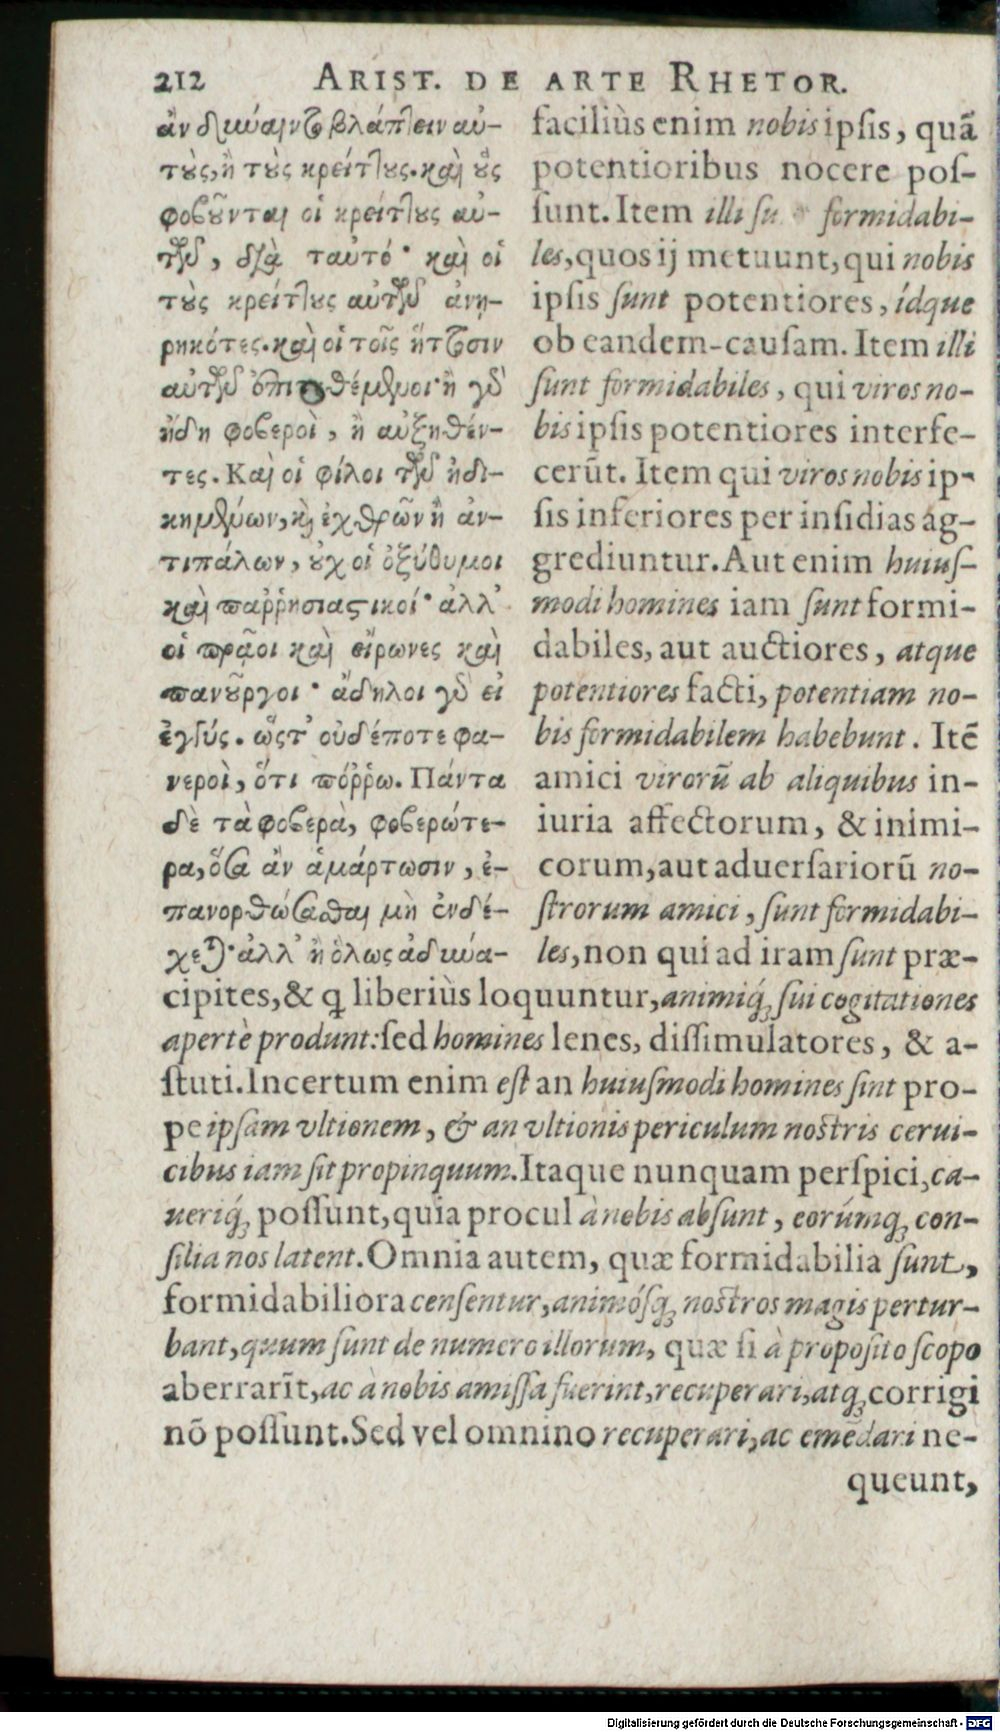 212 ARIST. DE ARTE RHETOR.
ἂν δύναιντο βλάπτειν αὐ-
τοὺς, ἢ τοὺς κρείττους. καὶ οὓς
φοβοῦνται οἱ κρείττους αὐ-
τῶν, διὰ ταὐτό· καὶ οἱ
τοὺς κρείττους αὐτῶν ἀνῃ-
ρηκότες. καὶ οἱ τοῖς ἥττοσιν
αὐτῶν ἐπιτιθέμενοι· ἢ γὸ
ἤδη φοβεροὶ, ἢ αὐξηθέν-
τες. Καὶ οἱ φίλοι τῶν ἠδι-
κημένων, καὶ ἐχθρῶν ἢ ἀν-
τιπάλων, οὐχ οἱ ὀξύθυμοι
καὶ παῤῥησιαστικοί· ἀλλ'
οἱ πρᾷοι καὶ εἴρωνες καὶ
πανοῦργοι· ἄδηλοι γὸ εἰ
ἐγγύς. ὥστ' οὐδέποτε φα-
νεροὶ, ὅτι πόῤῥω. Πάντα
δὲ τὰ φοβερὰ, φοβερώτε-
ρα, ὅσα ἂν ἁμάρτωσιν, ἐ-
πανορθώσασθαι μὴ ἐνδέ-
χεται· ἀλλ' ἢ ὅλως ἀδύνα-
faciliùs enim nobis ipſis, quã
potentioribus nocere poſ-
ſunt. Item illi ſu formidabi-
les, quos ij metuunt, qui nobis
ipſis ſunt potentiores, ídque
ob eandem-cauſam. Item illi
ſunt formidabiles, qui viros no-
bis ipſis potentiores interfe-
cerũt. Item qui viros nobis ip-
ſis inferiores per inſidias ag-
grediuntur. Aut enim huiuſ-
modi homines iam ſunt formi-
dabiles, aut auctiores, atque
potentiores facti, potentiam no-
bis formidabilem habebunt. Itẽ
amici virorũ ab aliquibus in-
iuria affectorum, & inimi-
corum, aut aduerſariorũ no-
ſtrorum amici, ſunt formidabi-
les, non qui ad iram ſunt præ-
cipites, & ꝗ liberiùs loquuntur, animiq́ꝫ ſui cogitationes
apertè produnt: ſed homines lenes, diſſimulatores, & a-
ſtuti. Incertum enim eſt an huiuſmodi homines ſint pro-
pe ipſam vltionem, & an vltionis periculum noſtris cerui-
cibus iam ſit propinquum. Itaque nunquam perſpici, ca-
ueriq́ꝫ poſſunt, quia procul à nobis abſunt, eorúmqꝫ con-
ſilia nos latent. Omnia autem, quæ formidabilia ſunt,
formidabiliora cenſentur, animóſqꝫ noſtros magis pertur-
bant, quum ſunt de numero illorum, quæ ſi à propoſito ſcopo
aberrarĩt, ac à nobis amiſſa fuerint, recuperari, atqꝫ corrigi
nõ poſſunt. Sed vel omnino recuperari, ac emẽdari ne-
queunt,
Digitalisierung gefördert durch die Deutsche Forschungsgemeinschaft - DFG